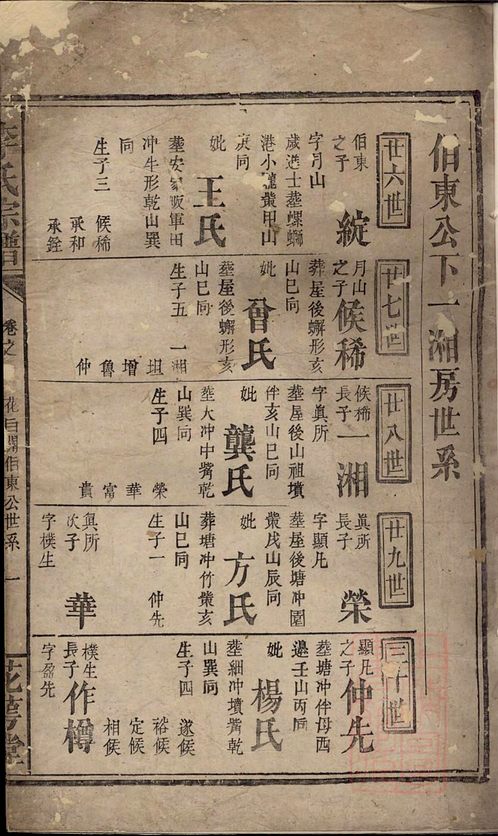 伯東公下一湘房世系
廿六世
伯東
之子
綻
字月山
歲進士葬螺螄
港小壠叢甲山
庚同
妣
王氏
葬安家畈軍田
冲牛形乾山巽
同
生子三
候稀
承和
承銓
廿七世
月山
之子
候稀
葬屋後蠏形亥
山巳同
妣
曾氏
葬屋後蠏形亥
山巳同
生子五
一湘
坦
增
魯
仲
廿八世
候稀
長子
一湘
字眞所
葬屋後山祖墳
伴亥山巳同
妣
龔氏
葬大冲中嘴乾
山巽同
生子四
榮
華
富
貴
廿九世
眞所
長子
榮
字顯凡
葬屋後塘冲園
叢戌山辰同
妣
方氏
葬塘冲竹叢亥
山巳同
生子一
仲先
眞所
次子
華
字樸生
三十世
顯凡
之子
仲先
葬塘冲伴母西
邊壬山丙同
妣
楊氏
葬細冲墳嘴乾
山巽同
生子四
遂候
裕候
定候
相候
樸生
長子
作樽
字盈先
李氏宗譜
卷之
花白閣伯東公世系
一
花萼堂